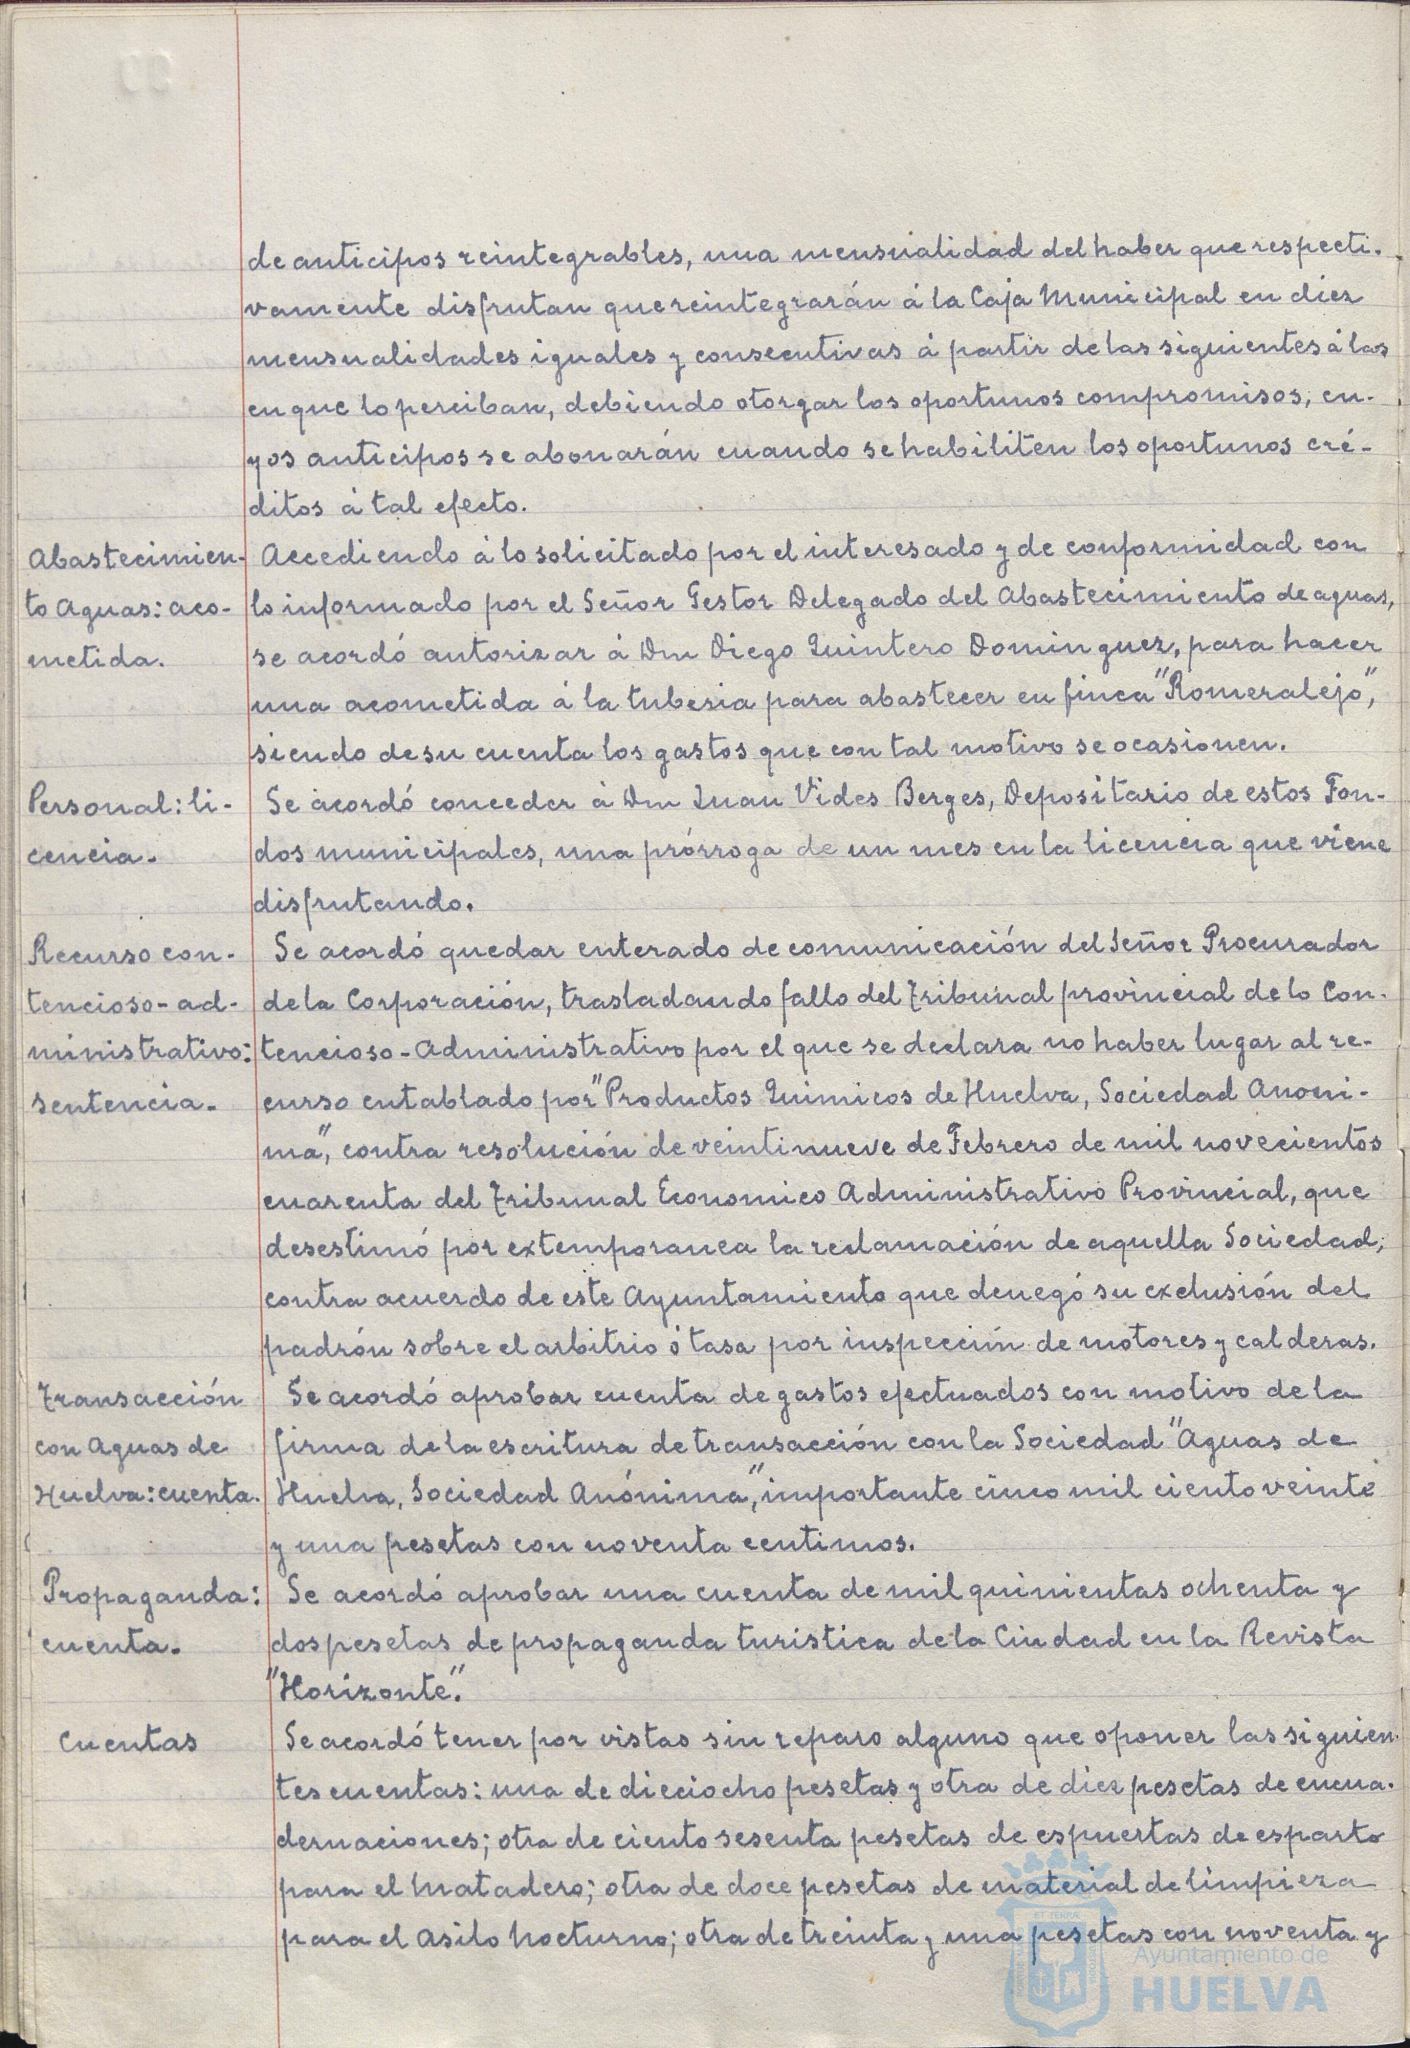 de anticipos reintegrables, una mensualidad del haber que respecti-
vamente disfrutan que reintegrarán á la Caja Municipal en diez
mensualidades iguales y consecutivas á partir de las siguientes á las
en que lo perciban, debiendo otorgar los oportunos compromisos; cu-
yos anticipos se abonarán cuando se habiliten los oportunos cré-
ditos á tal efecto.
Abastecimien-
to Aguas: aco-
metida.
Accediendo á lo solicitado por el interesado y de conformidad con
lo informado por el Señor Gestor Delegado del Abastecimiento de aguas,
se acordó autorizar á Dn Diego Quintero Dominguez, para hacer
una acometida á la tuberia para abastecer en finca "Romeralejo",
siendo de su cuenta los gastos que con tal motivo se ocasionen.
Personal: li-
cencia.
Se acordó conceder á Dn Juan Vides Berges, Depositario de estos Fon-
dos municipales, una prórroga de un mes en la licencia que viene
disfrutando.
Recurso con-
tencioso-ad-
ministrativo:
sentencia.
Se acordó quedar enterado de comunicación del Señor Procurador
de la Corporación, trasladando fallo del Tribunal provincial de lo Con-
tencioso-Administrativo por el que se declara no haber lugar al re-
curso entablado por "Productos Quimicos de Huelva, Sociedad Anoni-
ma", contra resolución de veintinueve de Febrero de mil novecientos
cuarenta del Tribunal Economico Administrativo Provincial, que
desestimó por extemporanea la reclamación de aquella Sociedad,
contra acuerdo de este Ayuntamiento que denegó su exclusión del
padrón sobre el arbitrio ó tasa por inspección de motores y calderas.
Transacción
con Aguas de
Huelva: cuenta.
Se acordó aprobar cuenta de gastos efectuados con motivo de la
firma de la escritura de transacción con la Sociedad "Aguas de
Huelva, Sociedad Anónima", importante cinco mil ciento veinte
y una pesetas con noventa centimos.
Propaganda:
cuenta.
Se acordó aprobar una cuenta de mil quinientas ochenta y
dos pesetas de propaganda turistica de la Ciudad en la Revista
"Horizonte".
Cuentas
Se acordó tener por vistas sin reparo alguno que oponer las siguien-
tes cuentas: una de dieciocho pesetas y otra de diez pesetas de encua-
dernaciones; otra de ciento sesenta pesetas de espuertas de esparto
para el Matadero; otra de doce pesetas de material de limpieza
para el Asilo Nocturno; otra de treinta y una pesetas con noventa y
Ayuntamiento de
HUELVA